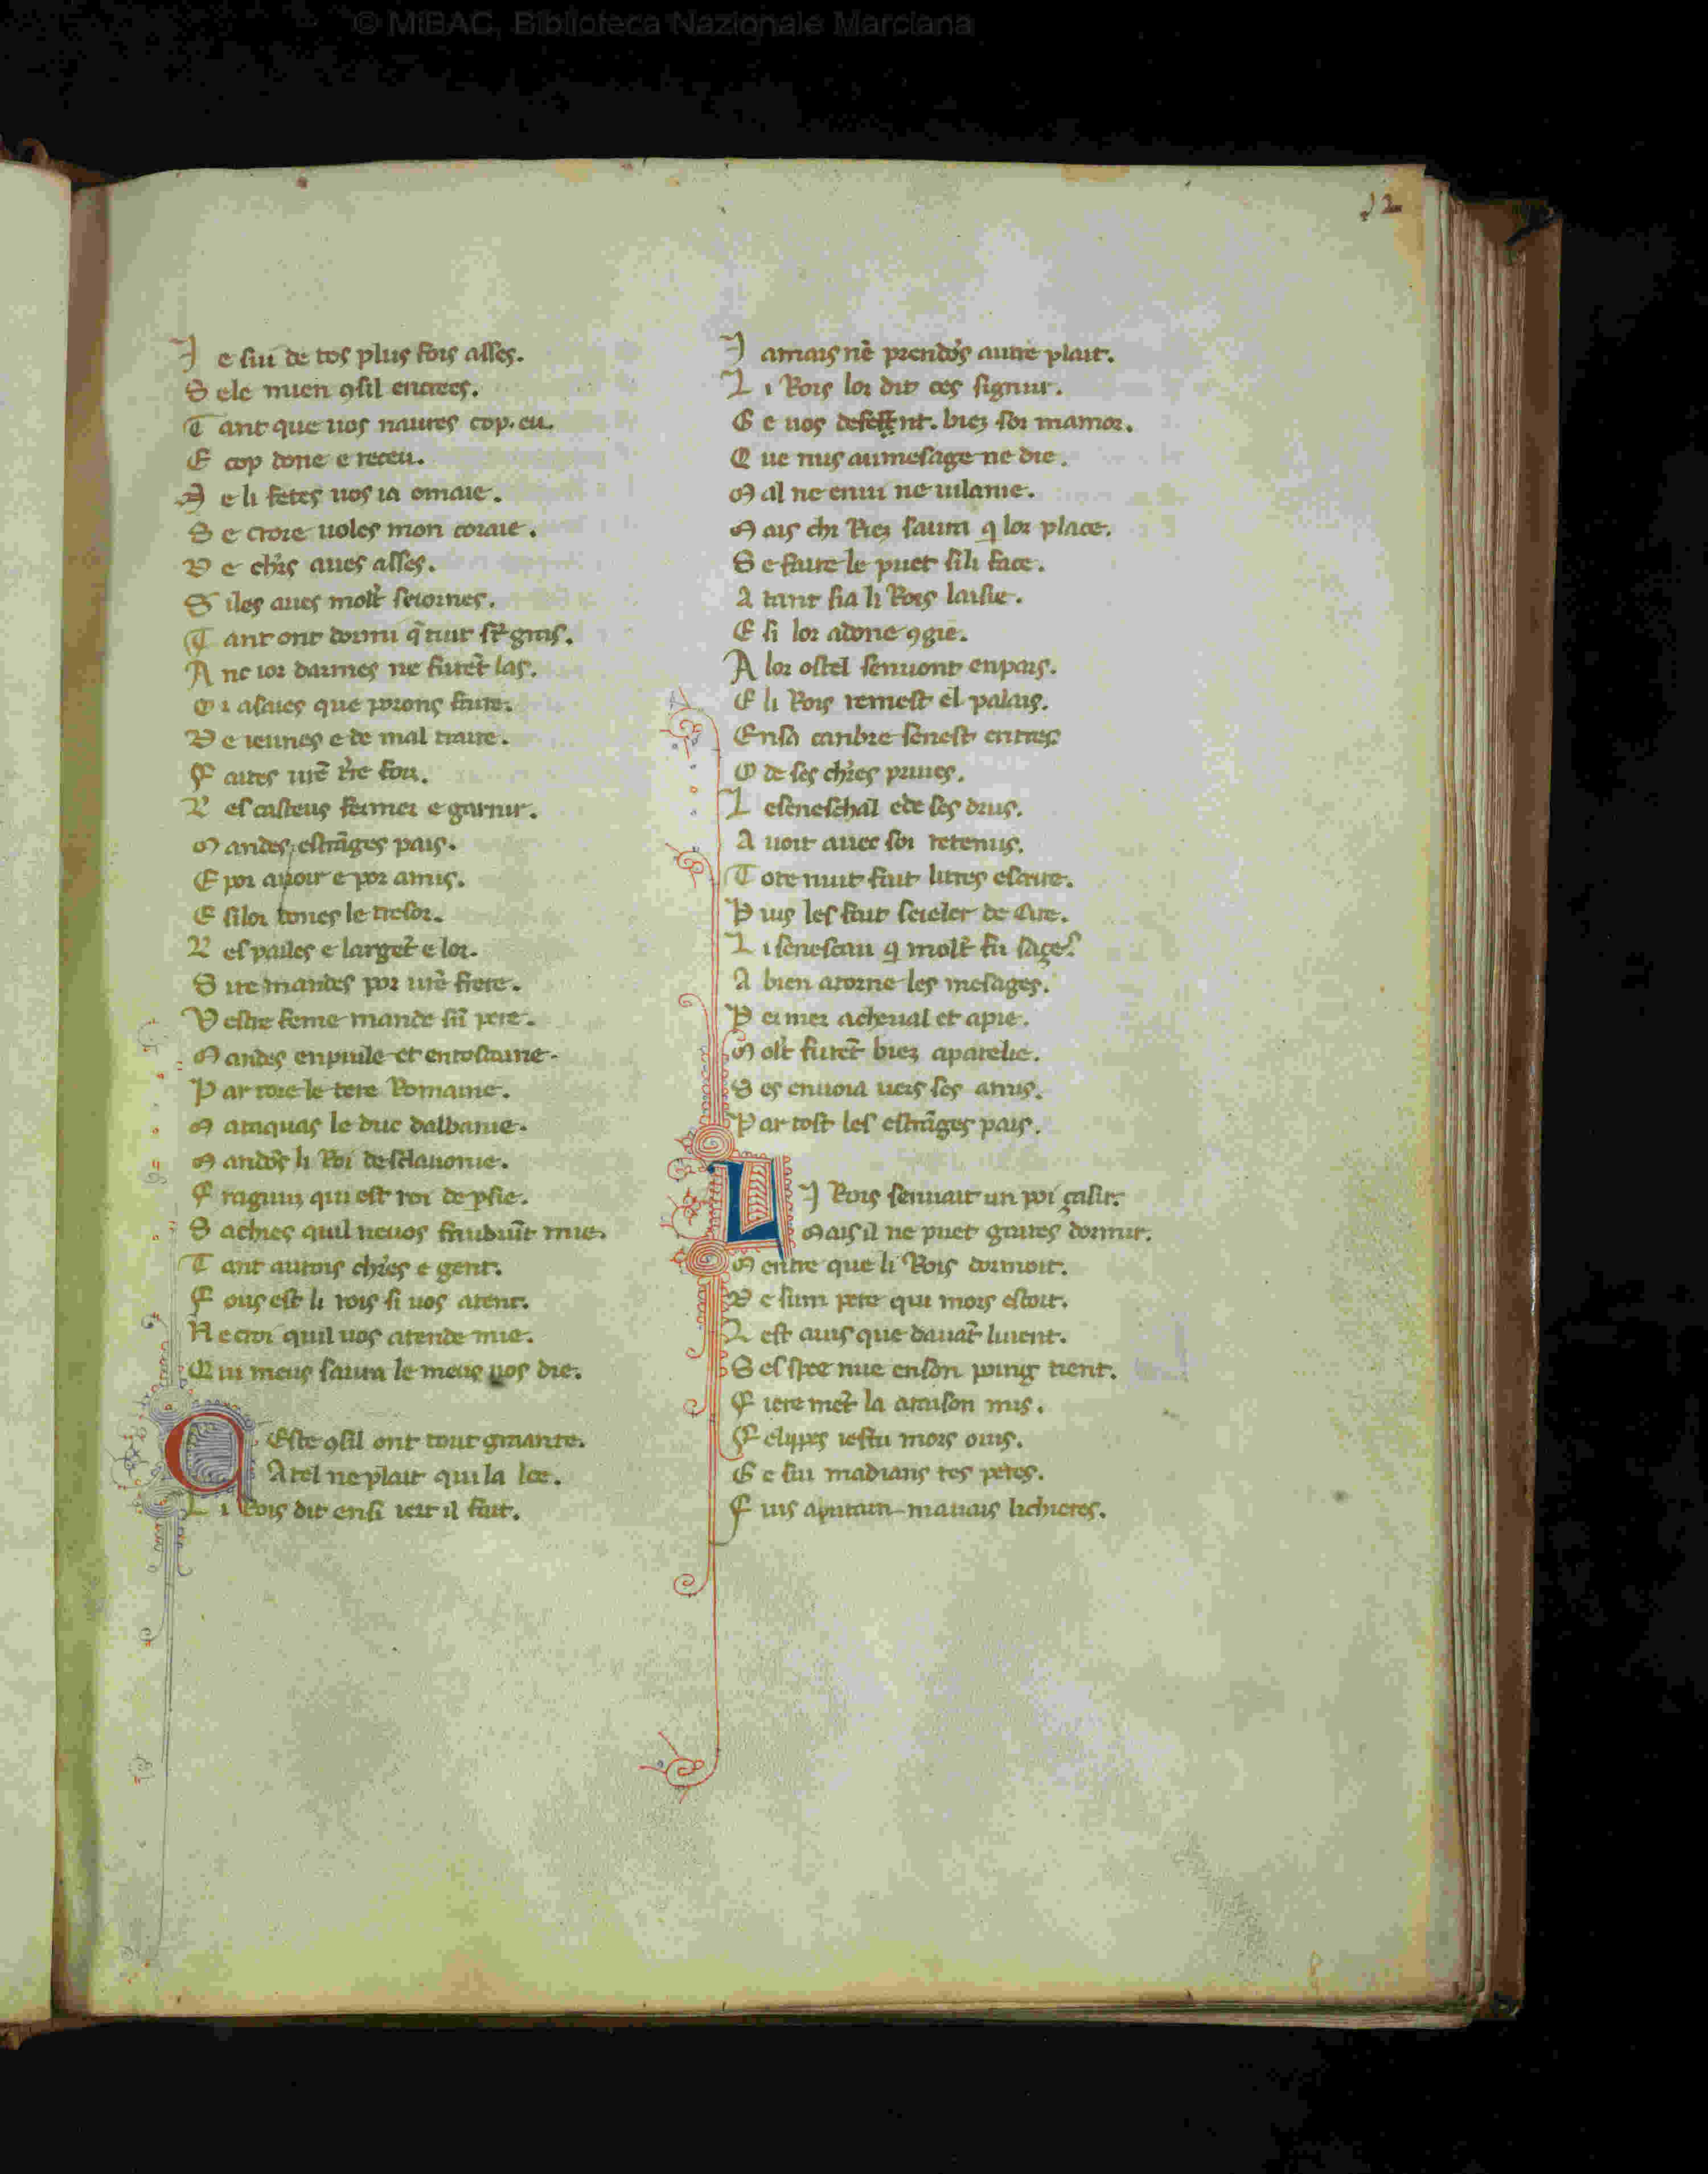 © MiBAC, Biblioteca Nazionale Marciana
12
J e sui de tos plus fors asses.
S ele mien ꝯsil entrees.
T ant que uos naures cop. eu.
E cop done e receu.
N e li fetes uos ia omaie.
S e croire uoles mon coraie.
D e chrs̄ aues asses.
S iles aues molt̄ seiornes.
T ant ont dormi q̄ tuit st̄ gras.
A nc ior darmes ne furēt las.
O i asaies que porons faire.
D e ieunes e de mal traire.
F aites urē tr̄e forn.
L es casteus fermer e garnir.
M andes estrāges pais.
E por auoir e por amis.
E silor dones le tresor.
L es pailes e largēt e lor.
S ire mandes por urē frere.
V estre feme mande sū pere.
M andes enpuile et entoscaine.
P ar tote le tere Romaine.
M ataquas le duc dalbanie.
M andōs li Roi desclauonie.
F raguinz qui est roi de ꝑsie.
S achies quil neuos faudrūt mie.
T ant aurois chrēs e gent.
F ous est li rois si uos atent.
N e croi quil uos atende mie.
Q ui meus saura le meus uos die.
C Este ꝯsil ont tout graante.
A tel ne plait qui la lee.
L i Rois dit ensi iert il fait.
J amais nē prendōs autre plait.
L i Rois lor dit ces signur.
G e uos defent. biez sor mamor.
Q ue nus aumesage ne die.
M al ne enui ne uilanie.
M ais chi Riez saura q̄ lor place.
S e faire le puet sili face.
A tant lia li Rois laisie.
E li lor adone ꝯgie.
A lor ostel senuont enpais.
E li Rois remest el palais.
Ensa canbre senest entres
O de ses chrēs priues.
L eseneschal ede ses drus.
A uoit auec soi retenus.
T ote nuit fait litres escrire.
P uis les fait seieler de cire.
L i senescau q̄ molt̄ fu sages
A bien atorne les mesages.
P ermer acheual et apie.
M olt furēt biez aparelie.
S es enuoia uers ses amis.
P ar tost les estrāges pais.
L J Rois senuait un poi çasir.
Mais il ne puet graires dormir.
M entre que li Rois dormoit.
D e sum pere qui mors estoit.
L est auis que dauāt liuient.
S espee nue enson poing tient.
F ieremēt la araison mis.
F elippes iestu mors ouis.
G e sui madians tes peres.
F uis aputain mauais lichieres.